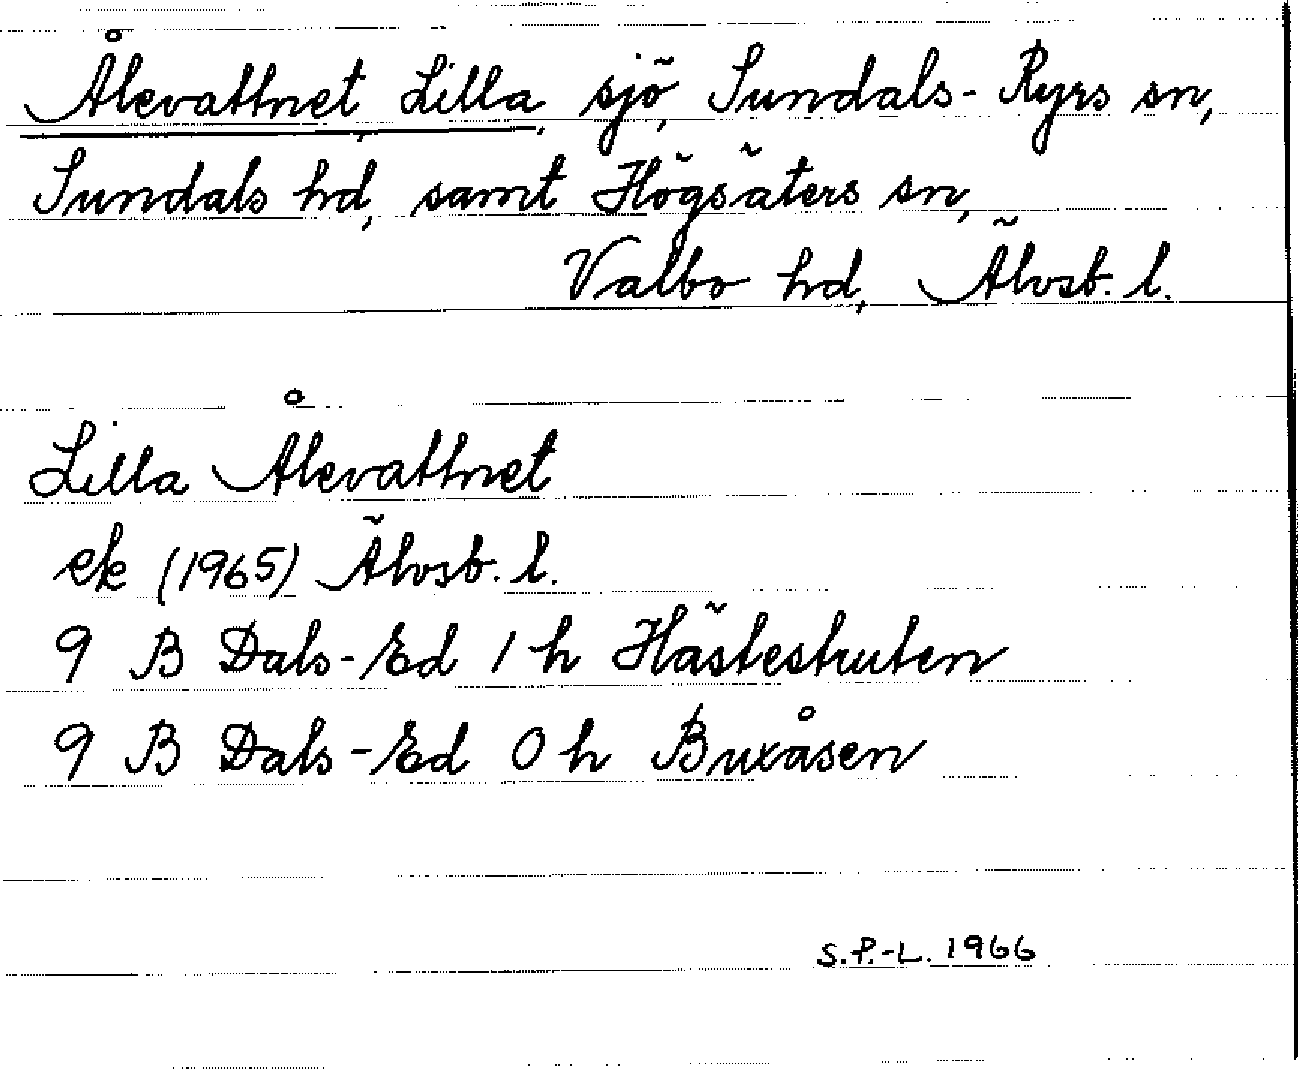 Ålevattnet, Lilla, sjö, Sundals-Ryrs sn,
Sundals hd, samt Högsäters sn,
Valbo hd, Älvsb. l.
Lilla Ålevattnet
ek (1965) Älvsb. l.
9 B Dals-Ed 1 h Hästestruten
9 B Dals-Ed 0 h Buxåsen
S.P.-L. 1966